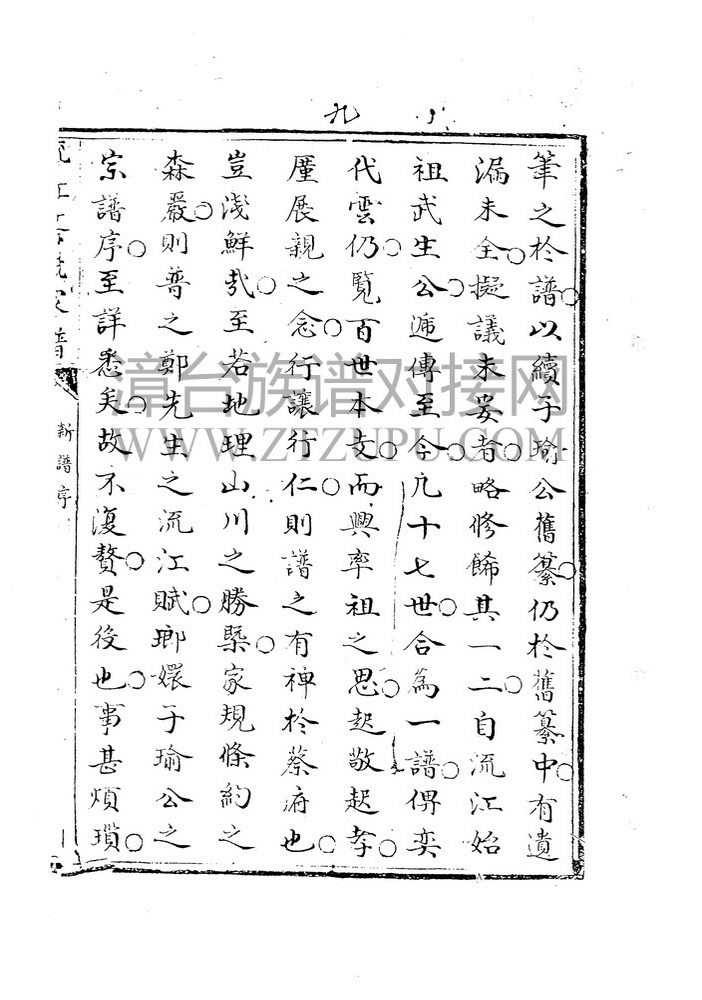 九
筆之於譜○以續子瑜公舊纂○仍於舊纂中○有遺
漏未全○擬議未妥者○略修餙其一二○自流江始
祖武生公○逓傳至今○凢十七世○合為一譜○俾奕
代雲仍○覧百世本支○而興率祖之思○起敬起孝○
厪展親之念○行讓行仁○則譜之有裨於蔡府也○
豈淺鮮哉○至若地理山川之勝槩○家規條約之
森嚴○則普之鄭先生之流江賦○瑯嬛子瑜公之
宗譜序○至詳悉矣○故不復贅○是後也○事甚煩瑣○
新譜序
漳台族谱对接网
WWW.ZTZUPU.COM